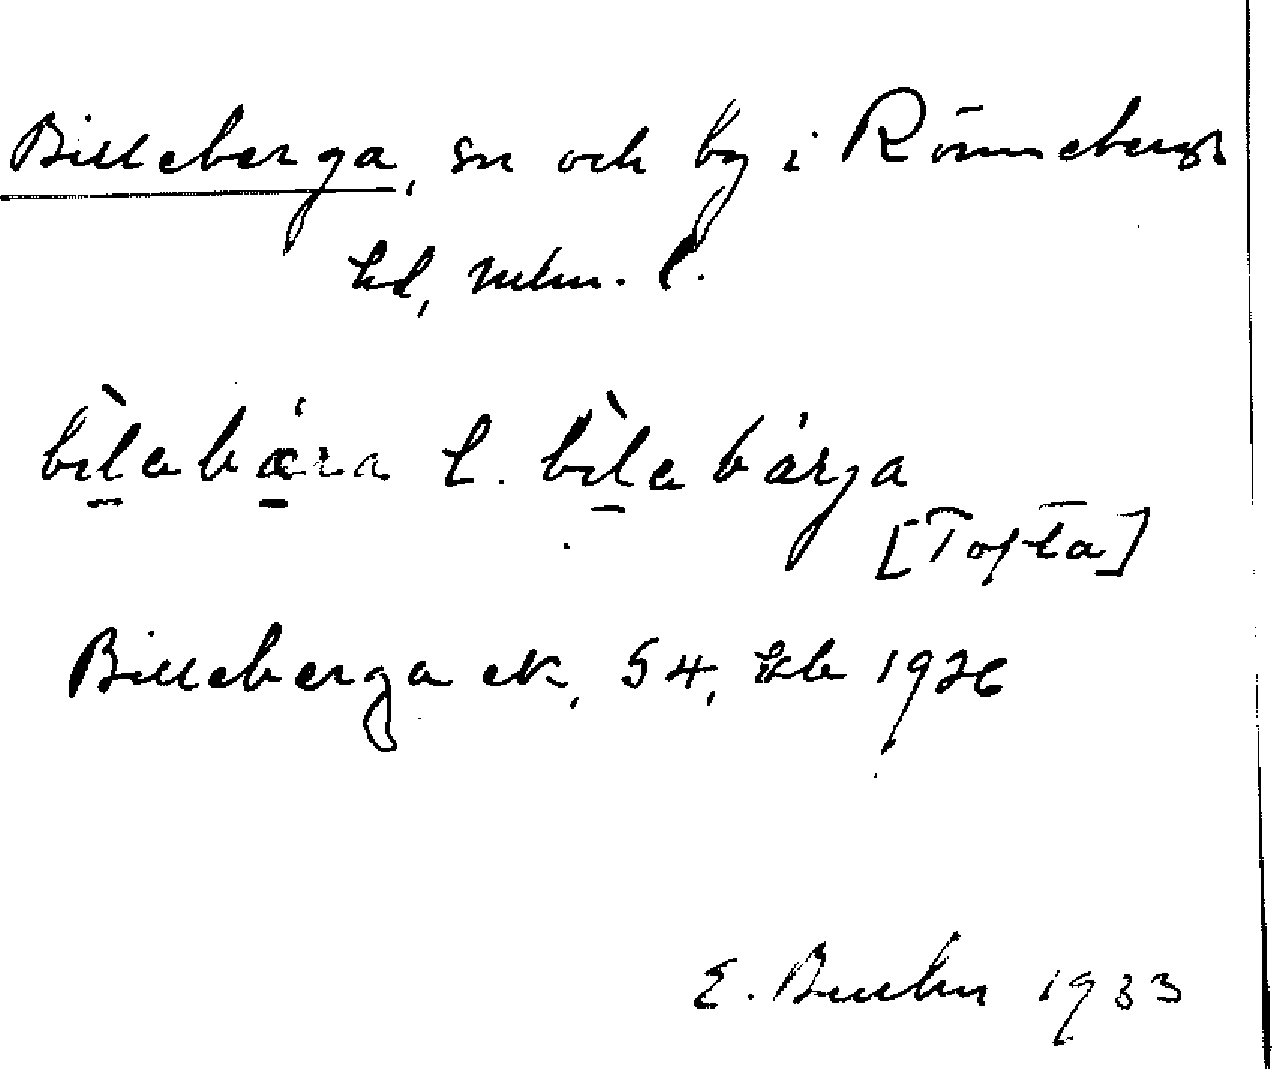 Billeberga, sn och by i Rönnebergs
hd, Mlm. l.
bìlabǽra l. bìlabárja
[Tofta]
Billeberga ek, 54, kb 1926
E. 1933